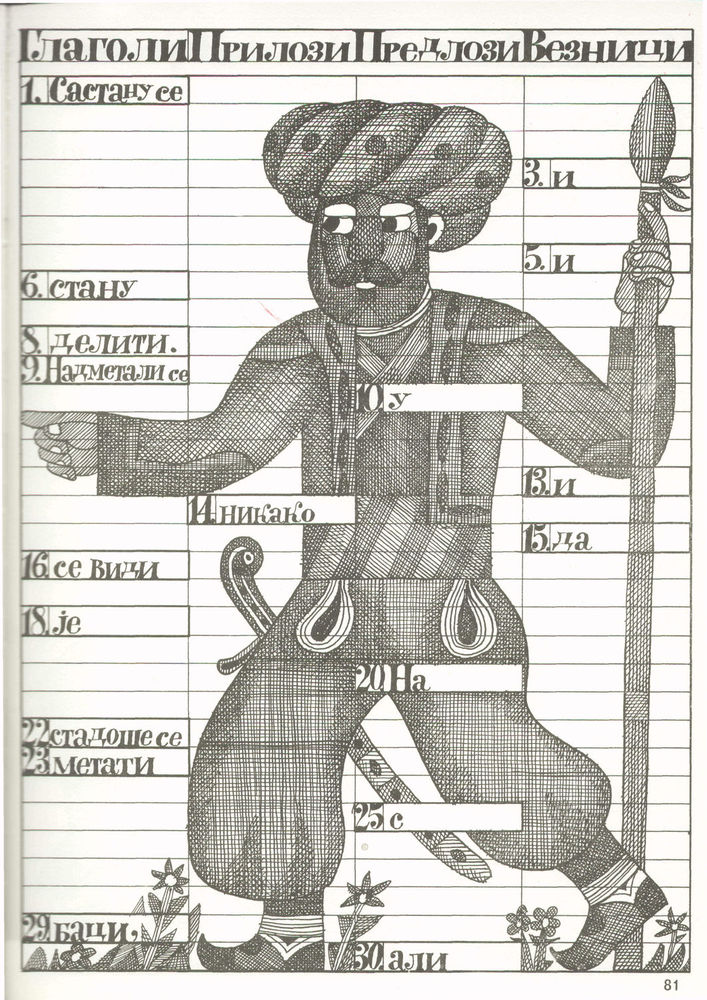 Глаголи Прилози Предлози Везници
1. Састану се
3. и
5. и
6. стану
8. делити.
9. Надметали се
10. у
13. и
14. никако
15. да
16. се види
18. је
20. На
22. стадоше се
23. метати
25. с
29. баци,
30. али
81